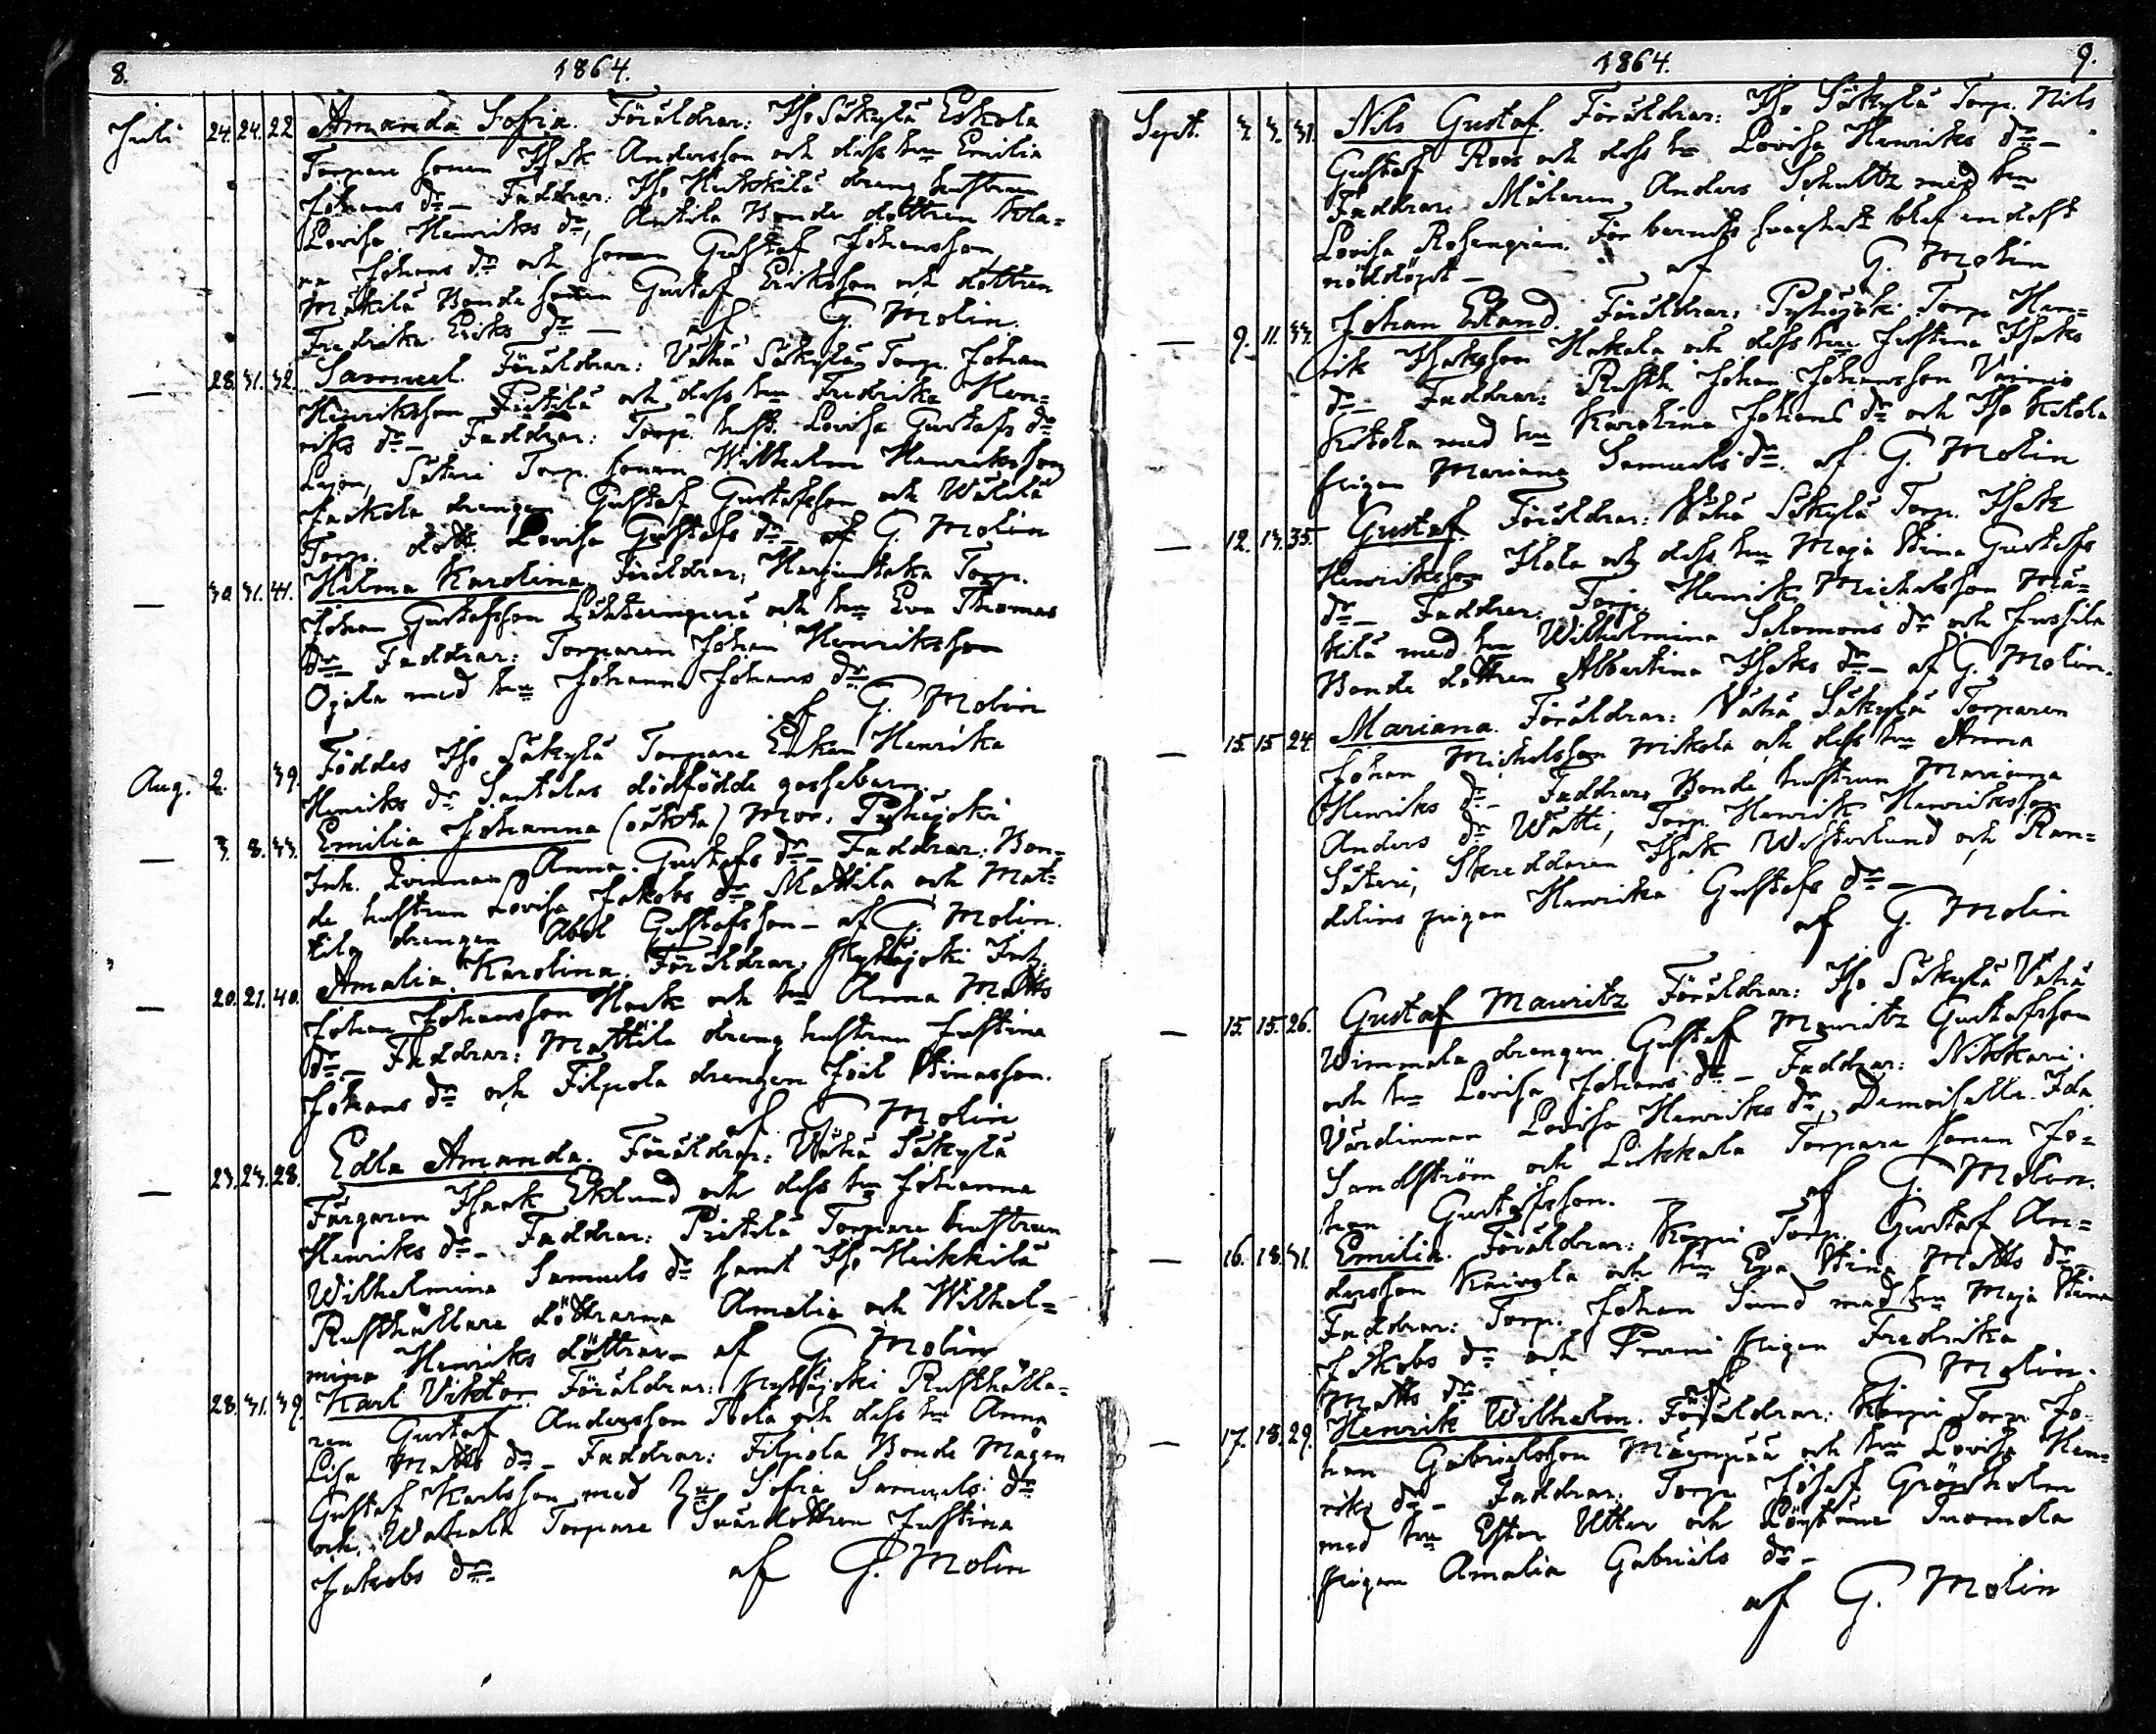 8. 1864.
Juli 24. 24. 22 Amanda Sofia. Föräldrar: Iso Säkylä Eskola
Torpare sonen Isak Andersson och dess hu Emilia
Johans dr – Faddrar: Iso Heikkilä dreng hustrun
Lovisa Henriks dr, Anttila Bonde dottren Kola=
na Johans dr och sonen Gustaf Johansson,
Mäkilä Bonde sonen Gustaf Eriksson och dottren
Fredrika Eriks dr – af G. Molin.
— 28. 31. 32. Samuel. Föräldrar: Vähä Säkylä Torp. Johan
Henriksson Pietilä och dess hu Fredrika Hen=
riks dr – Faddrar: Torp. hust. Lovisa Gustafs dr
Lejon, Säteri Torp. sonen Wilhelm Henriksson
Jaakola drengen Gustaf Gustafsson och Wälilä
Torp. dott. Lovisa Gustafs dr – af G. Molin
— 30. 31. 41. Hilma Karolina. Föräldrar: Harjuntaka Torp.
Johan Gustafsson Lähteenperä och hu Eva Thomas
dr – Faddrar: Torparen Johan Henriksson
Ojala med hu Johanna Johans dr
af G. Molin
Aug. 2. 39. Föddes Iso Säkylä Torpare Enkan Henrika
Henriks dr Santalas dödfödde gossebarn.
— 3. 8. 33. Emilia Johanna (oäkta) Mor: Pyhäjoki
Inh. Qvinnan Anna Gustafs dr – Faddrar: Bon=
de hustrun Lovisa Jakobs dr Mattila och Mat=
tila drengen Abel Gustafsson – af G. Molin.
— 20. 21. 40. Amalia Karolina. Föräldrar: Pyhäjoki Inh.
Johan Johansson Haak och hu Anna Matts
dr – Faddrar: Mattila dreng hustrun Justina
Johans dr och Filpola drengen Joil Stinasson.
af G. Molin
— 23. 23. 28. Edla Amanda. Föräldrar: Wähä Säkylä
Färgaren Isaak Eklund och dess hu Johanna
Henriks dr – Faddrar: Pietilä Torpare hustrun
Wilhelmina Samuels dr samt Iso Heikkilä
Rusthållare döttrarna Amalia och Wilhel=
mina Henriks döttrar – af G. Molin
28. 31. 39. Karl Viktor. Föräldrar: Pyhäjoki Rusthålla=
ren Gustaf Andersson Isola och dess hu Anna
Lisa Matts dr – Faddrar: Filpola Bonde Magen
Gustaf Karlsson med hu Sofia Samuels dr
och Torpare Svärdottren Justina
Jakobs dr af G. Molin
1864. 9.
Sept. 3. 3. 31. Nils Gustaf. Föräldrar: Iso Säkylä Torp. Nils
Gustaf Roos och dess hu Lovisa Henriks dr –
Faddrar: Målaren Anders Schultz med hu
Lovisa Rosengrén. För barnets svaghet blef endast
nöddöpt – af G. Molin
— 9. 11. 33. Johan Erland. Föräldrar: Pyhäjoki Torp. Hen=
rik Isaksson Hakala och dess hu Justina Isaks
dr – Faddrar: Rusth. Johan Johansson Vainio
Kitola med hu Karolina Johans dr och Iso Kitola
pigan Mariana Samuels dr af G. Molin
— 12. 13. 35. Gustaf. Föräldrar: Vähä Säkylä Torp. Isak
Henriksson Kola och dess hu Maja Stina Gustafs
dr – Faddrar: Torp. Henrik Michelsson Mä=
kilä med hu Wilhelmina Salomons dr och Jussila
Bonde dottren Albertina Isaks dr – af G. Molin.
— 15. 15 24 Mariana. Föräldrar: Vähä Säkylä Torparen
Johan Michelsson Mikola och dess hu Anna
Henriks dr – Faddrar: Bonde hustrun Mariana
Anders dr Wätti, Torp. Henrik Henriksson
Säteri, Skreddaren Isak Westerlund och Ran=
delins pigan Henrika Gustafs dr –
af G. Molin
— 15. 15. 26. Gustaf Mauritz Föräldrar: Iso Säkylä Vähä
Wimmala drengen Gustaf Mauritz Gustafsson
och hu Lovisa Johans dr – Faddrar: Nikkari
Värdinnan Lovisa Henriks dr, Demoiselle Ida
Sandström och Liekkala Torpare sonen Jo=
han Gustafsson. – af G. Molin.
— 16. 18. 31. Emilia. Föräldrar: Korpi Torp. Gustaf An=
dersson Knivola och hu Eva Stina Matts dr –
Faddrar: Torp. Johan Sund med hu Maja Stina
Jakobs dr och Pruni pigan Fredrika
Matts dr af G. Molin.
— 17. 18. 29. Henrik Wilhelm. Föräldrar: Korpi Torp. Jo=
han Gabrielsson Mäenpää och hu Lovisa Hen=
riks dr – Faddrar: Torp. Josef Grönholm
med hu Ester Utter och Tuomola
pigan Amalia Gabriels dr –
af G. Molin